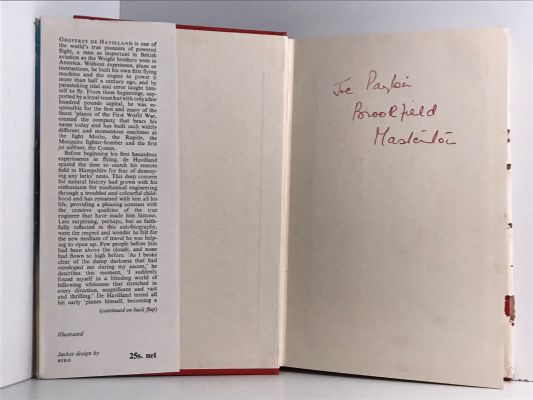 GEOFFREY DE HAVILLAND is one of
the world's true pioneers of powered
flight, a man as important in British
aviation as the Wright brothers were in
America. Without experience, plans or
instructions, he built his own first flying
machine and the engine to power it
more than half a century ago, and by
painstaking trial and error taught him-
self to fly. From these beginnings, sup-
ported by a loyal team but with only a few
hundred pounds capital, he was re-
sponsible for the first and many of the
finest 'planes of the First World War,
created the company that bears his
name today and has built such widely
different and momentous machines as
the light Moths, the Rapide, the
Mosquito fighter-bomber and the first
jet airliner, the Comet.
Before beginning his first hazardous
experiments in flying, de Havilland
spared the time to search his remote
field in Hampshire for fear of destroy-
ing any larks' nests. This deep concern
for natural history had grown with his
enthusiasm for mechanical engineering
through a troubled and colourful child-
hood and has remained with him all his
life, providing a pleasing contrast with
the creative qualities of the true
engineer that have made him famous.
Less surprising, perhaps, but as faith-
fully reflected in this autobiography,
were the respect and wonder he felt for
the new medium of travel he was help-
ing to open up. Few people before him
had been above the clouds, and none
had flown so high before. 'As I broke
clear of the damp darkness that had
enveloped me during my ascent,' he
describes this moment, 'I suddenly
found myself in a blinding world of
billowing whiteness that stretched in
every direction, magnificent and vast
and thrilling.' De Havilland tested all
his early 'planes himself, becoming a
(continued on back flap)
Illustrated
Jacket design by
BIRO
25s. net
Joe
Brookfield
Masterton